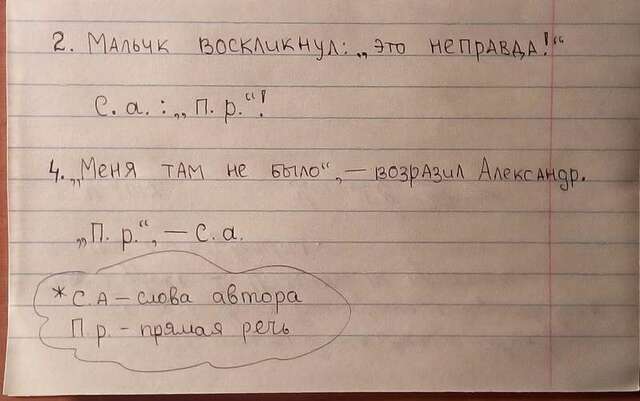 2. Мальчк воскликнул: „это неправда!“
С. а. : „П. р.“!
4. „Меня там не было“, — возразил Александр.
„П. р.“, — С. а.
* С. А — слова автора
П. р. - прямая речь